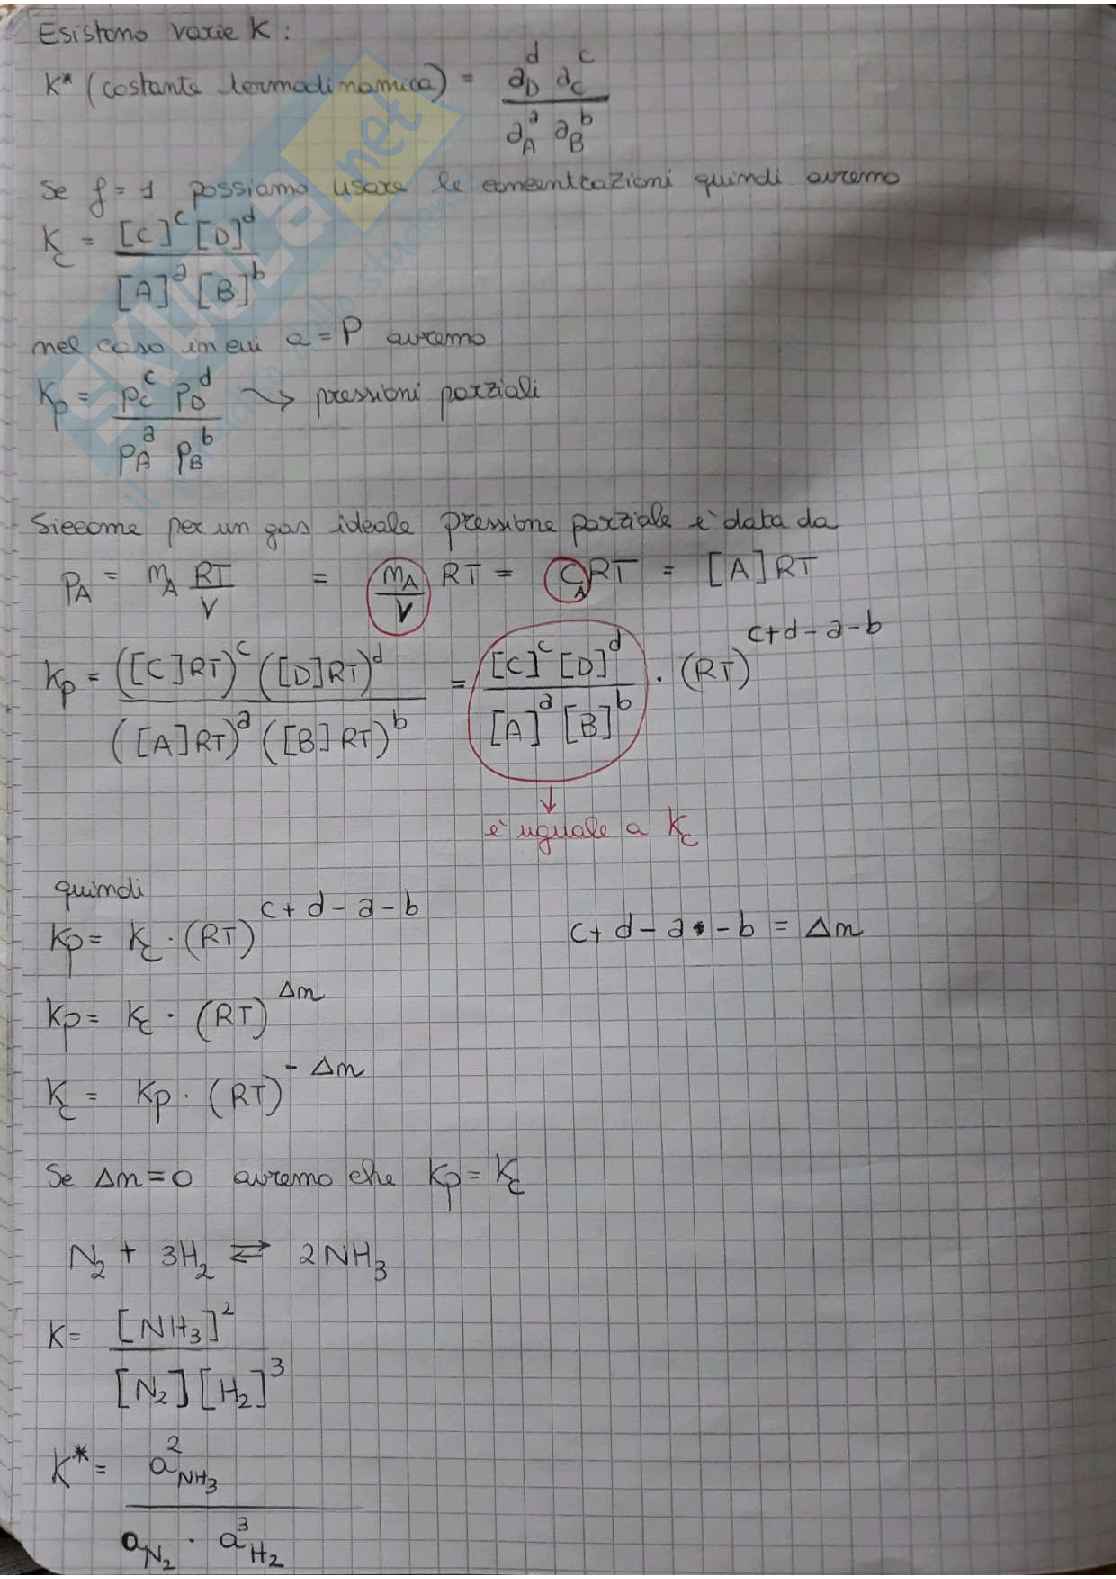 Esistono varie K :
K* (costante termodinamica) = a_D^d a_C^c / a_A^a a_B^b
Se f = 1 possiamo usare le concentrazioni quindi avremo
K_c = [C]^c [D]^d / [A]^a [B]^b
nel caso in cui a = P avremo
K_p = p_C^c p_D^d / p_A^a p_B^b ⇝ pressioni parziali
Siccome per un gas ideale pressione parziale è data da
p_A = n_A RT / V = n_A / V RT = C_A RT = [A] RT
K_p = ([C] RT)^c ([D] RT)^d / ([A] RT)^a ([B] RT)^b = [C]^c [D]^d / [A]^a [B]^b · (RT)^c+d-a-b
↓
è uguale a K_c
quindi
K_p = K_c · (RT)^c+d-a-b c+d-a-b = Δn
K_p = K_c · (RT)^Δn
K_c = K_p · (RT)^-Δn
Se Δn = 0 avremo che K_p = K_c
N₂ + 3H₂ ⇄ 2NH₃
K = [NH₃]² / [N₂] [H₂]³
K* = a²_NH₃ / a_N₂ · a³_H₂
SKUOLA.net